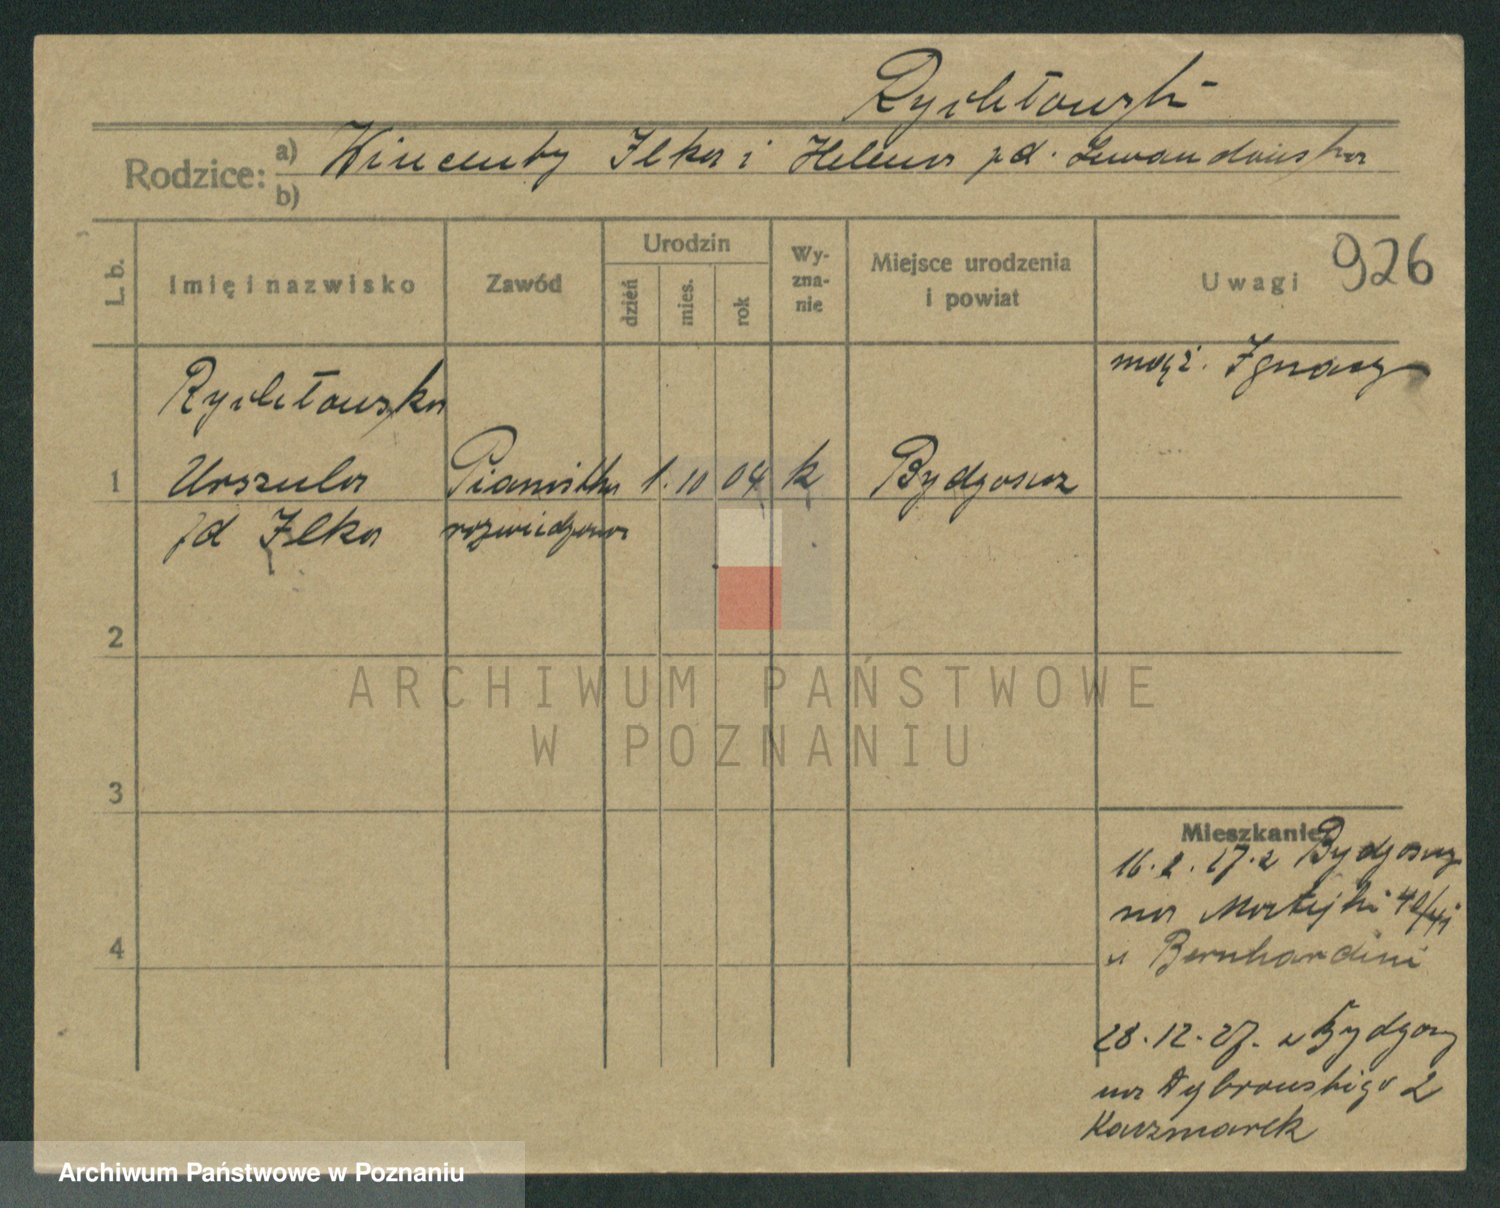 Rychłowski
Rodzice:
a) Wincenty Ilka i Helena z d. Lewandowska
b)
L. b.
Imię i nazwisko
Zawód
Urodzin
dzień
mies.
rok
Wy-
zna-
nie
Miejsce urodzenia
i powiat
Uwagi
926
mąż. Ignacy
Rychłowska
1 Urszula Pianistka 1. 10 04 k Bydgoszcz
z d Ilka rozwiedziona
2
3
4
Mieszkanie
16. 2. 27. z Bydgoszcz
na Matejki
u Bernhardini
28. 12. 27. z Bydgoszcz
na Dąbrowskiego 2
Kaczmarek
ARCHIWUM PAŃSTWOWE
W POZNANIU
Archiwum Państwowe w Poznaniu